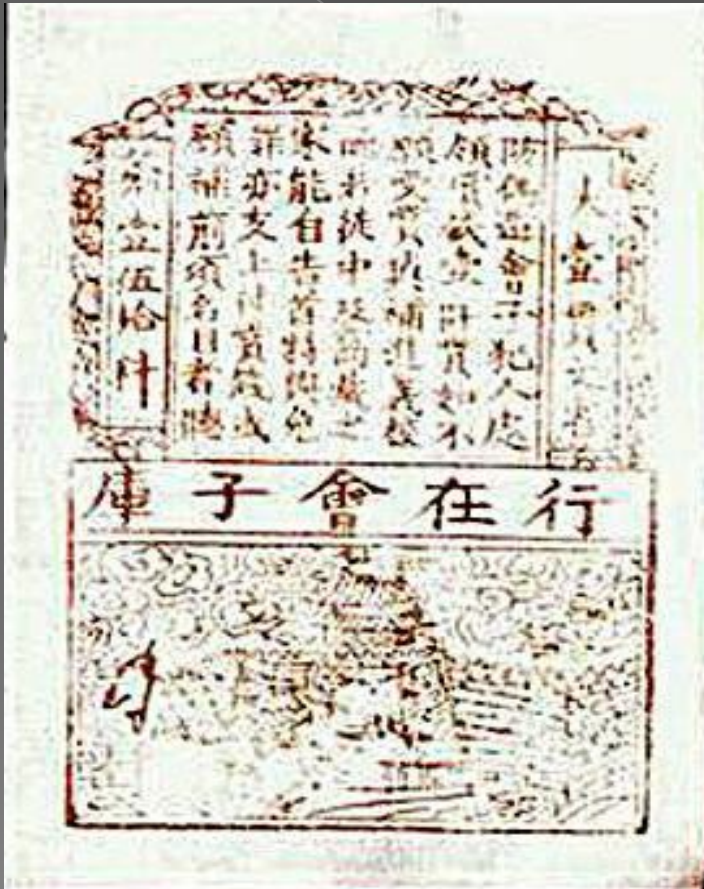 大壹貫文省
偽造會子犯人處
賞錢壹阡貫如不
願支賞與補進義校
尉若徒中及窩藏之
家能自告首特與免
罪亦支上件賞錢或
願補前項名目者聽
第壹伍拾料
行在會子庫